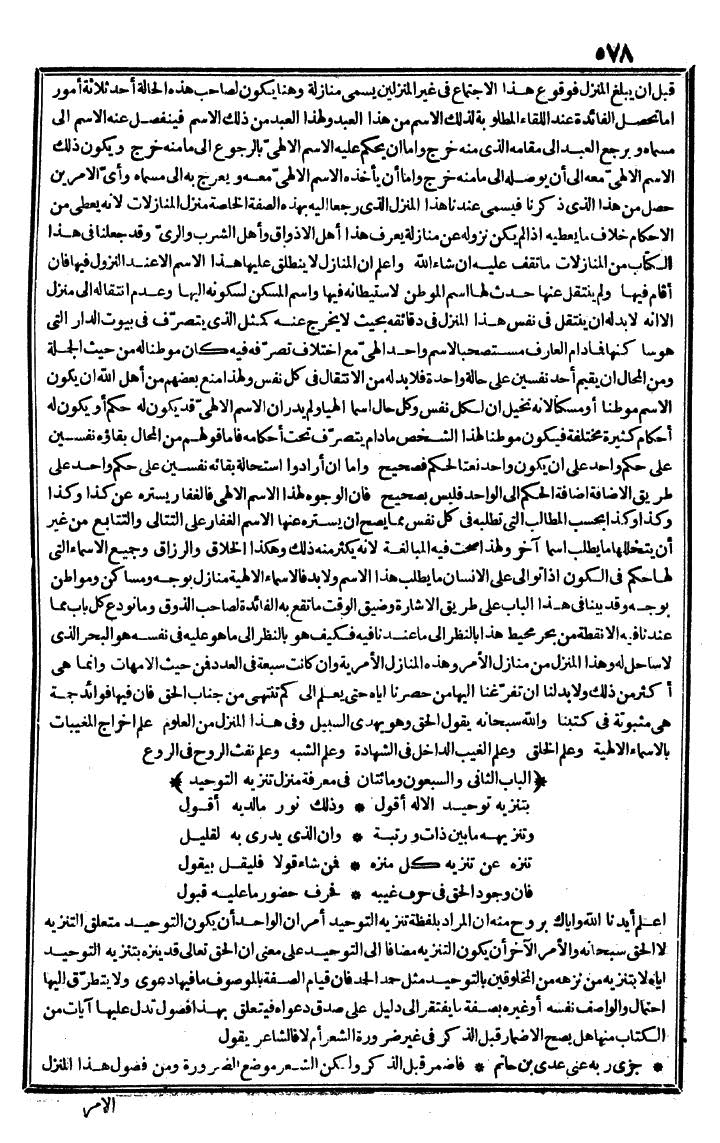 ٥٧٨
قبل ان يبلغ المنزل فوقوع هذا الاجتماع فى غير المنزلين يسمى منازلة وهنا يكون لصاحب هذه الحالة أحد ثلاثة أمور
اما تحصل الفائدة عند اللقاء المطلوبة لذلك الاسم من هذا العبد ولهذا العبد من ذلك الاسم فينفصل عنه الاسم الى
مسماه ويرجع العبد الى مقامه الذى منه خرج واما ان يحكم عليه الاسم الالهىّ بالرجوع الى ما منه خرج ويكون ذلك
الاسم الالهىّ معه الى أن يوصله الى ما منه خرج واما أن يأخذه الاسم الالهىّ معه ويعرج به الى مسماه وأىّ الامرين
حصل من هذا الذى ذكرنا فيسمى عندنا هذا المنزل الذى رجعا اليه بهذه الصفة الخاصة منزل المنازلات لانه يعطى من
الاحكام خلاف ما يعطيه اذا لم يكن نزوله عن منازلة يعرف هذا أهل الاذواق وأهل الشرب والرىّ وقد جعلنا فى هذا
الكتاب من المنازلات ما تقف عليه ان شاء الله واعلم ان المنازل لا ينطلق عليها هذا الاسم الا عند النزول فيها فان
أقام فيها ولم ينتقل عنها حدث لها اسم الموطن لاستيطانه فيها واسم المسكن لسكونه اليها وعدم انتقاله الى منزل
الا انه لا بد له ان ينتقل فى نفس هذا المنزل فى دقائقه بحيث لا يخرج عنه كمثل الذى يتصرّف فى بيوت الدار التى
هو ساكنها فمادام العارف مستصحبا لاسم واحد الهىّ مع اختلاف تصرّفه فيه كان موطنا له من حيث الجملة
ومن المحال ان يقيم أحد نفسين على حالة واحدة فلا بد له من الانتقال فى كل نفس ولهذا منع بعضهم من أهل الله ان يكون
الاسم موطنا أو مسكنا لانه تخيل ان لكل نفس وكل حال اسما الهيا ولم يدر ان الاسم الالهىّ قد يكون له حكم أو يكون له
أحكام كثيرة مختلفة فيكون موطنا لهذا الشخص مادام يتصرّف تحت أحكامه فما قولهم من المحال بقاؤه نفسين
على حكم واحد على ان يكون واحد نعتا لحكم فصحيح واما ان أرادوا استحالة بقائه نفسين على حكم واحد على
طريق الاضافة اضافة الحكم الى الواحد فليس بصحيح فان الوجوه لهذا الاسم الالهى فالغفار يستره عن كذا وكذا
وكذا وكذا بحسب المطالب التى تطلبه فى كل نفس مما يصح ان يستره عنها الاسم الغفار على التتالى والتتابع من غير
أن يتخللها ما يطلب اسما آخر ولهذا صحت فيه المبالغة لانه يكثر منه ذلك وهكذا الخلاق والرزاق وجميع الاسماء التى
لها حكم فى الكون اذا توالى على الانسان ما يطلب هذا الاسم ولا بد فالاسماء الالهية منازل بوجه ومساكن ومواطن
بوجه وقد بينا فى هذا الباب على طريق الاشارة وضيق الوقت ما تقع به الفائدة لصاحب الذوق وما نودع كل باب مما
عندنا فيه الا نقطة من بحر محيط هذا بالنظر الى ما عندنا فيه فكيف هو بالنظر الى ما هو عليه فى نفسه هو البحر الذى
لا ساحل له وهذا المنزل من منازل الأمر وهذه المنازل الأمرية وان كانت سبعة فى العدد فمن حيث الامهات وانما هى
أكثر من ذلك ولا بد لنا ان تفرّغنا اليها من حصرنا اياه حتى يعلم الى كم تنتهى من جناب الحق فان فيها فوائد جمة
هى مثبوتة فى كتبنا والله سبحانه يقول الحق وهو يهدى السبيل وفى هذا المنزل من العلوم علم اخراج المغيبات
بالاسماء الالهية وعلم الخلق وعلم الغيب الداخل فى الشهادة وعلم الشبه وعلم نفث الروح فى الروع
﴿الباب الثانى والسبعون ومائتان فى معرفة منزل تنزيه التوحيد﴾
بتنزيه توحيد الاله أقول * وذلك نور ما لديه أفول
وتنزيهه ما بين ذات ورتبة * وان الذى يدرى به لقليل
تنزه عن تنزيه كل منزه * فمن شاء قولا فليقل بيقول
فان وجود الحق فى حرف غيبه * فحرف حضور ما عليه قبول
اعلم أيدنا الله واياك بروح منه ان المراد بلفظة تنزيه التوحيد أمر ان الواحد أن يكون التوحيد متعلق التنزيه
لا الحق سبحانه والأمر الآخر أن يكون التنزيه مضافا الى التوحيد على معنى ان الحق تعالى قد ينزه بتنزيه التوحيد
اياه لا بتنزيه من نزهه من المخلوقين بالتوحيد مثل حمد الحمد فان قيام الصفة بالموصوف ما فيها دعوى ولا يتطرّق اليها
احتمال والواصف نفسه أو غيره بصفة ما يفتقر الى دليل على صدق دعواه فيتعلق بهذا فصول تدل عليها آيات من
الكتاب منها هل يصح الاضمار قبل الذكر فى غير ضرورة الشعر أم لا فالشاعر يقول
* جزى ربه عنى عدى بن حاتم * فاضمر قبل الذكر ولكن الشعر موضع الضرورة ومن فصول هذا المنزل
الامر